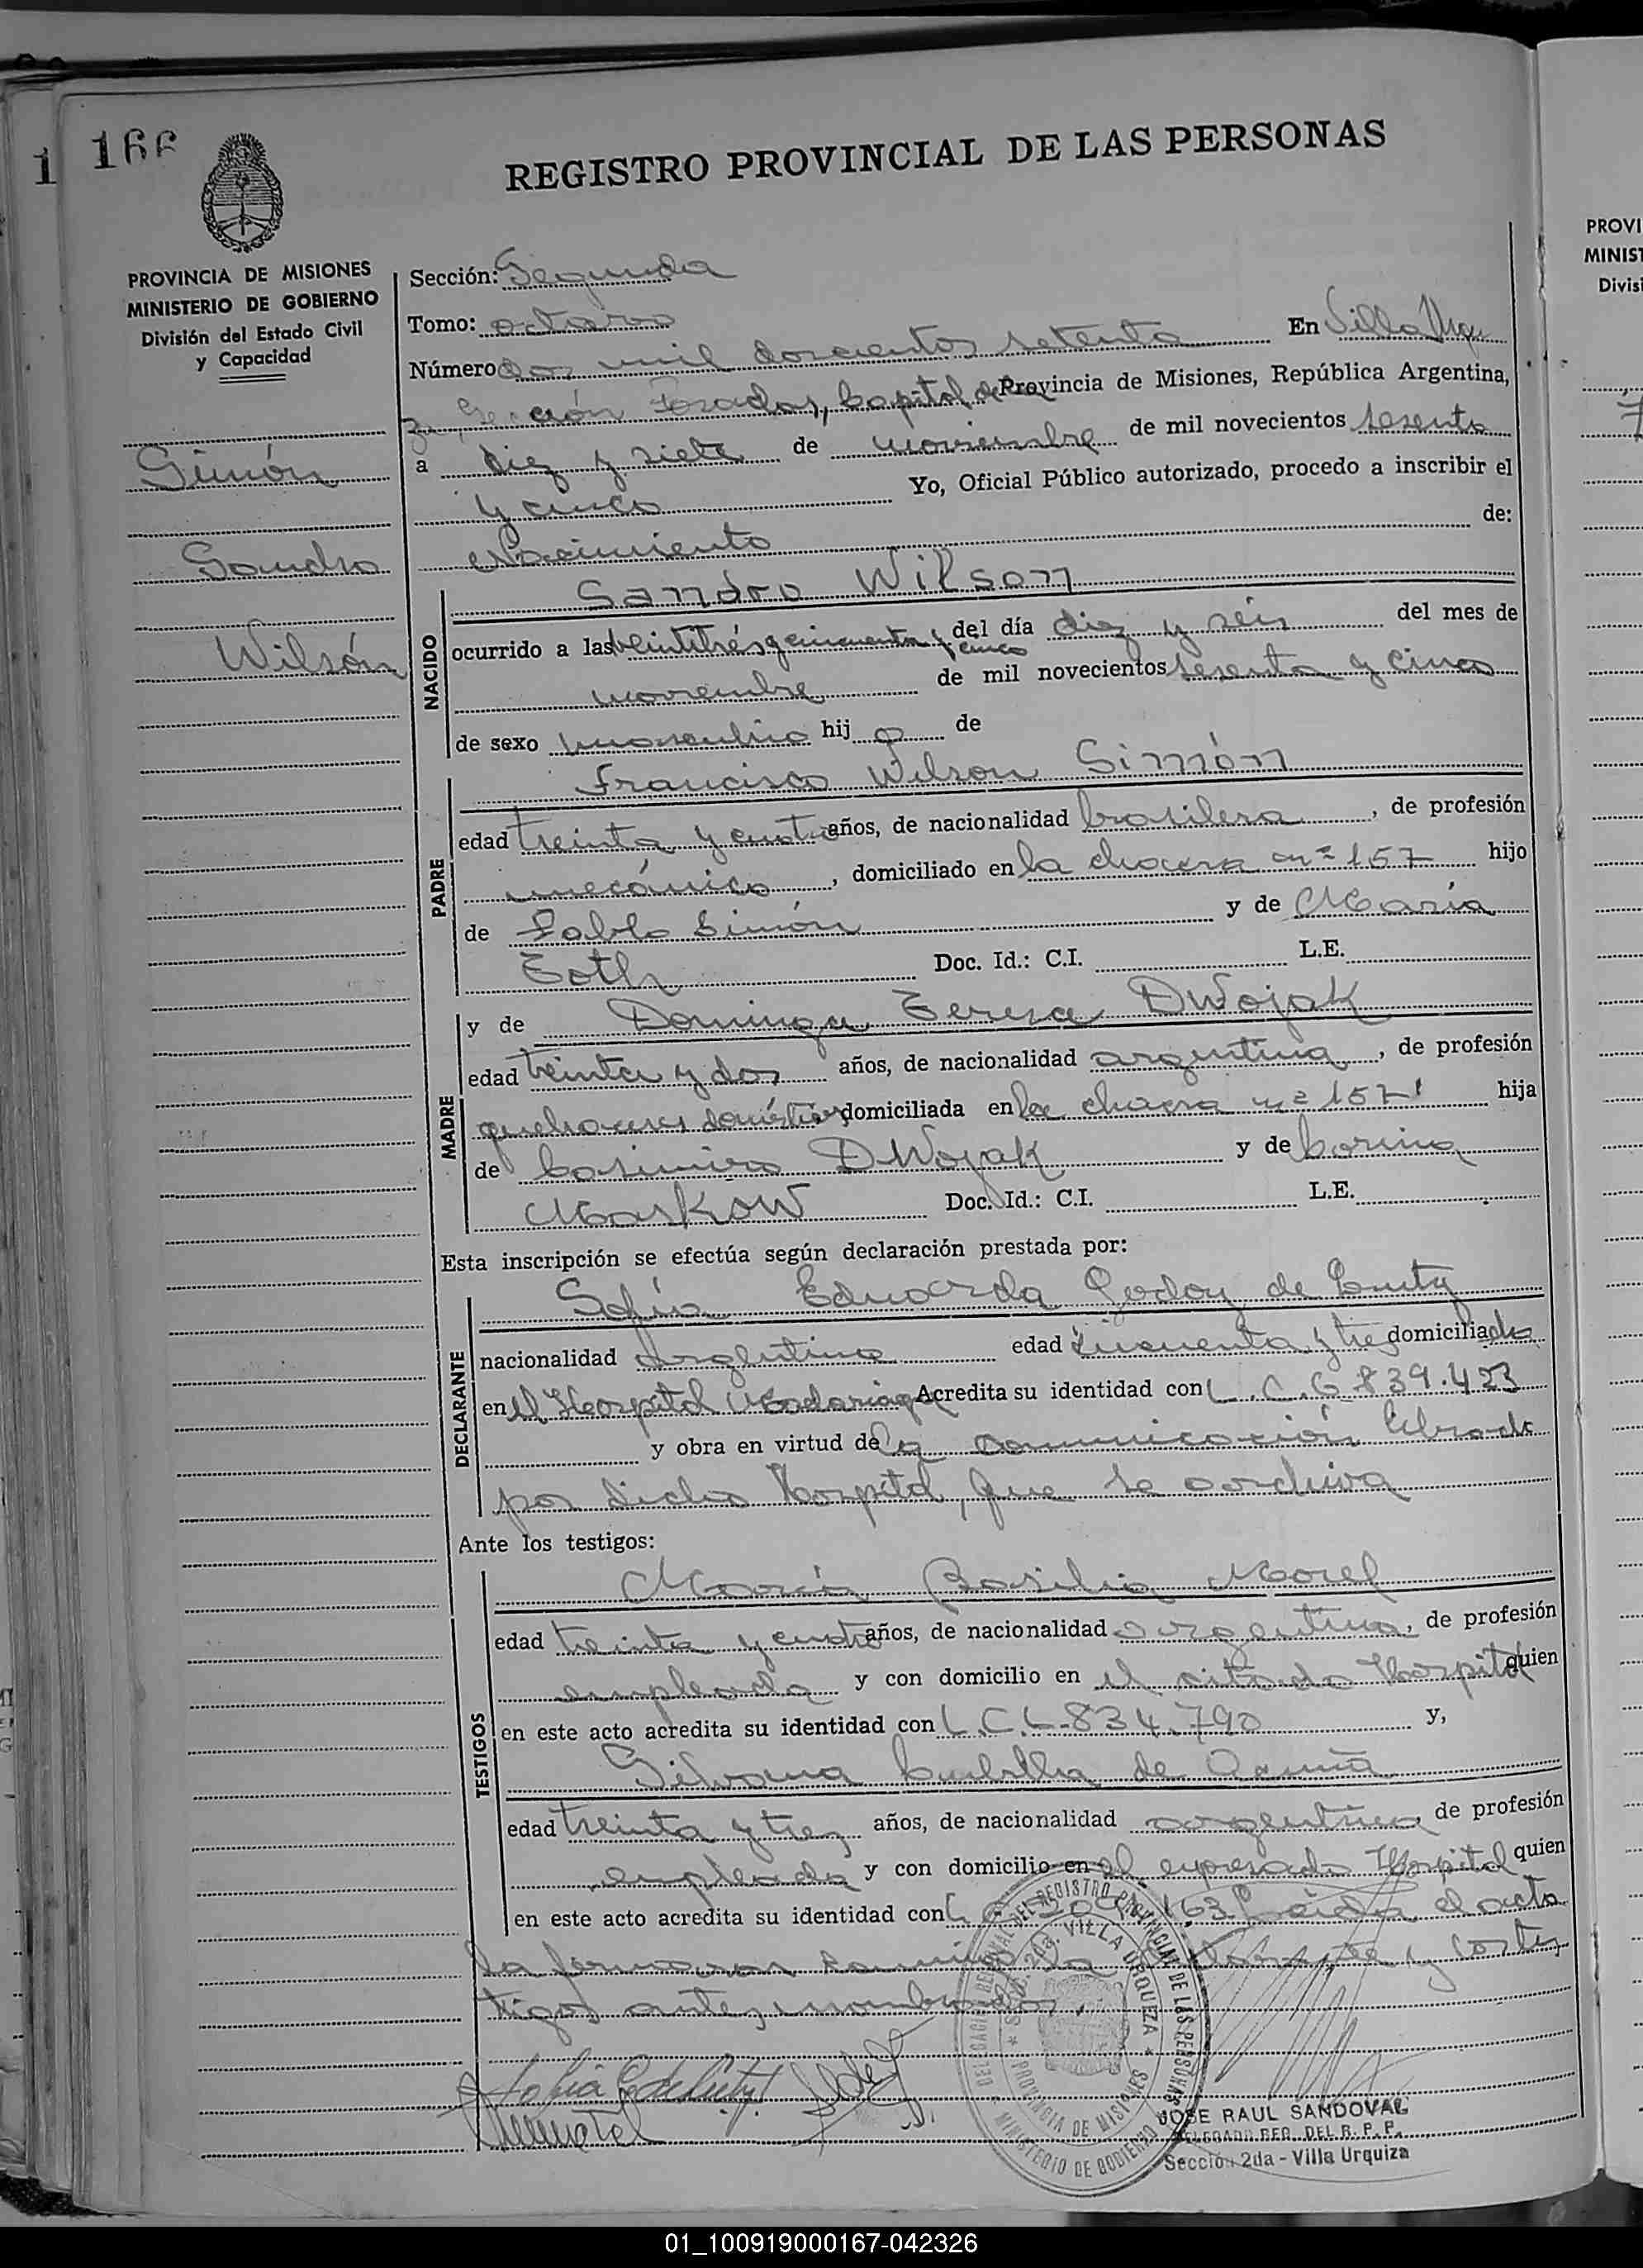 166
1
REGISTRO PROVINCIAL DE LAS PERSONAS
PROVINCIA DE MISIONES
MINISTERIO DE GOBIERNO
División del Estado Civil
y Capacidad
Simón
Sandro
Wilsón
Sección: Segunda
Tomo: octavo
Número dos mil doscientos setenta En Villa Urqui
za, Sección Posadas, Capital de Provincia de Misiones, República Argentina,
a diez y siete de noviembre de mil novecientos sesenta
y cinco Yo, Oficial Público autorizado, procedo a inscribir el
Nacimiento de:
NACIDO
Sandro Wilson
ocurrido a las veintitrés y cincuenta y cinco del día diez y seis del mes de
noviembre de mil novecientos sesenta y cinco
de sexo masculino hij o de
PADRE
Francisco Wilson Simón
edad treinta y cuatro años, de nacionalidad brasilera, de profesión
mecánico, domiciliado en la chacra nº 157 hijo
de Pablo Simón y de María
Toth Doc. Id.: C.I. L.E.
MADRE
y de Dominga Teresa DWojak
edad treinta y dos años, de nacionalidad argentina, de profesión
quehaceres domésticos domiciliada en la chacra nº 157 hija
de Casimiro DWojak y de Carina
MasKow Doc. Id.: C.I. L.E.
Esta inscripción se efectúa según declaración prestada por:
DECLARANTE
Sofía Eduarda Godoy de
nacionalidad argentina edad cincuenta y tres domiciliada
en el Hospital Madariaga Acredita su identidad con L.C. 6.839.423
y obra en virtud de la comunicación librada
por dicho Hospital, que se archiva
Ante los testigos:
TESTIGOS
María Basilia Morel
edad treinta y cuatro años, de nacionalidad argentina, de profesión
empleada y con domicilio en el citado Hospital quien
en este acto acredita su identidad con L.C. 834.790 y,
Silvana de Acuña
edad treinta y tres años, de nacionalidad argentina, de profesión
empleada y con domicilio en el expresado Hospital quien
en este acto acredita su identidad con 163. Leída el acta
la firmaron la y los tes
tigos antes nombrados.
DEL REGISTRO PROVINCIAL DE LAS PERSONAS
MINISTERIO DE GOBIERNO
2da. VILLA URQUIZA
PROVINCIA DE MISIONES
JOSE RAUL SANDOVAL
DELEGADO REG. DEL R. P. P.
Sección 2da - Villa Urquiza
PROVI
MINIST
Divisi
01_100919000167-042326